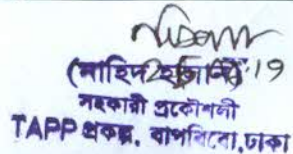 (নাহিদ হাসান)
সহকারী প্রকৌশলী
TAPP প্রকল্প, বাপবিবো, ঢাকা